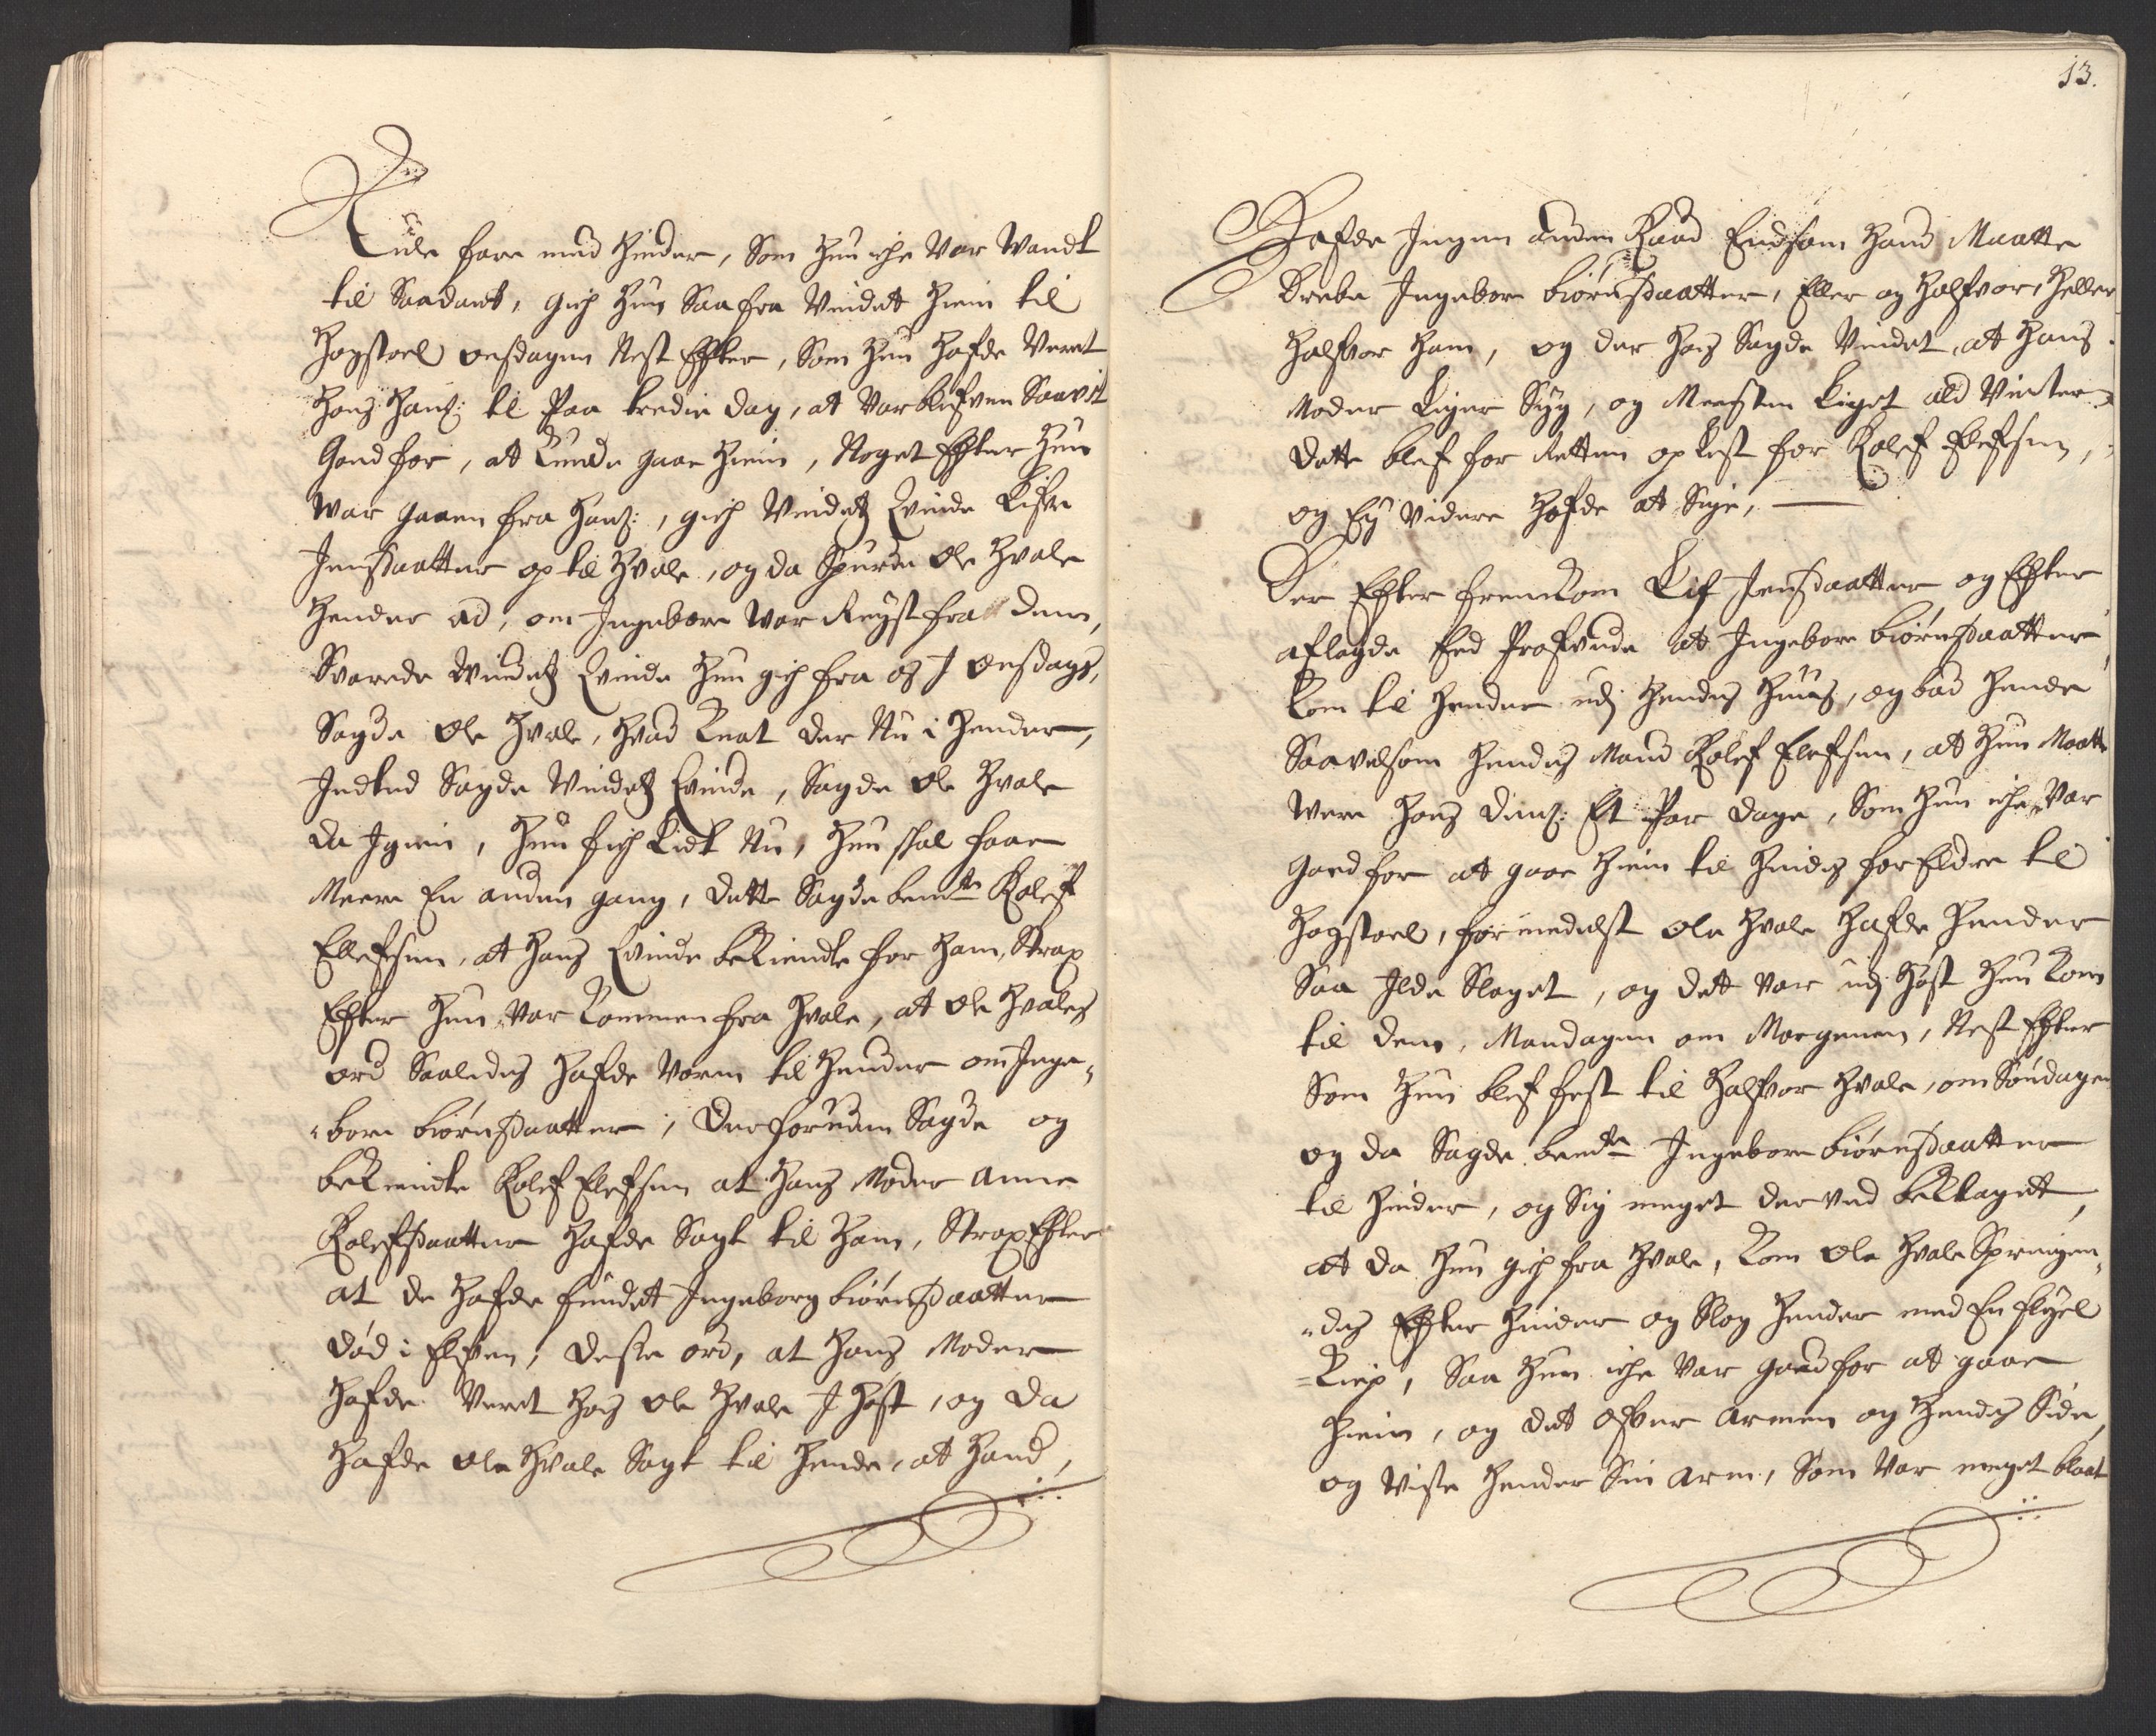 Kule fare med hinder, Som hun iche Var Vandt
til Saadant, gich hun Saa fra Vindet hiem til
Hogstoel onsdagen Nest Effter, Som hun hafde Veret
hos hanß: til Paa tredie dag, at Var blefven Saavit
Goed for, at kunde gaae hiem, Noget Effter hun
War gaaen fra hanß:, gich Vindetz Qvinde Lisbe
Jenßdaatter op til Hvale, og da Spurde Ole Hvale
hender ad, om Ingebore War Reyst fra dem,
Svarede Windetz Qvinde hun gich fra oß J onsdags,
Sagde Ole Hvale, hvad Knat der Nu i hender,
Indted Sagde Vindetz Qvinde, Sagde Ole Hvale
da Igien, hun fich Lidt Nu, hun skal faae
Meere En anden gang, dette Sagde bemte Rolef
Ellefsen, at hans Qvinde bekiendte for ham, Strax
Effter hun Var kommen fra Hvale, at Ole Hvales
ord Saaledes hafde Veren til hender om Inge-
-bore biørnßdaatter, Derforuden Sagde og
bekiendte Rolef Elefsen at hans Moder Anne
Rolefsdaatter hafde Sagt til ham, Strax Effter
at de hafde fundet Ingeborg biørnßdaatter
død i Elfven, desse ord, at hans Moder
hafde Veret hos Ole Hvale J høst, og da
hafde Ole Hvale Sagt til hende, at hand,
13.
Hafde Ingen anden Raad End som hand Maatte
Drebe Ingebore biørnßdaatter, Eller og Halfvor, heller
Halfvor ham, og der hos Sagde Vindet, at hans
Moder Liger Syg, og Meesten Liget ald Vinter
dette blef for Retten op Lest for Rolef Elefsen,
og Ey Videre hafde at Sige,
Der Effter fremkom Lif Jenßdaatter og Effter
aflagde Eed Profvede at Ingebore biørnßdaatter
kom til hender udj hendes huus, og bad hende
Saavelsom hendes Mand Rolef Elefsen, at hun Maatte
Were hos dem: Et Par dage, Som hun iche Var
goed for at gaae hiem til hindes forEldre til
Hogstoel, formedelst Ole Hvale hafde hender
Saa Ilde Slaget, og dett Var udj høst hun kom
til dem, Mandagen om Morgenen, Nest Effter
Som hun blef fest til Halfvor Hvale, om Søndagen
og da Sagde bemte Ingebore biørnßdaatter
til hinder, og Sig meget der ved beklaget,
at da hun gich fra Hvale, kom Ole Hvale Springen-
-des Effter hinder og Slog hender med En Flyel
=Kiep, Saa hun iche Var goed for at gaae
hiem, og det ofver Armen og hendes Side,
og Viste hender Sin Arm, Som Var meget blaat